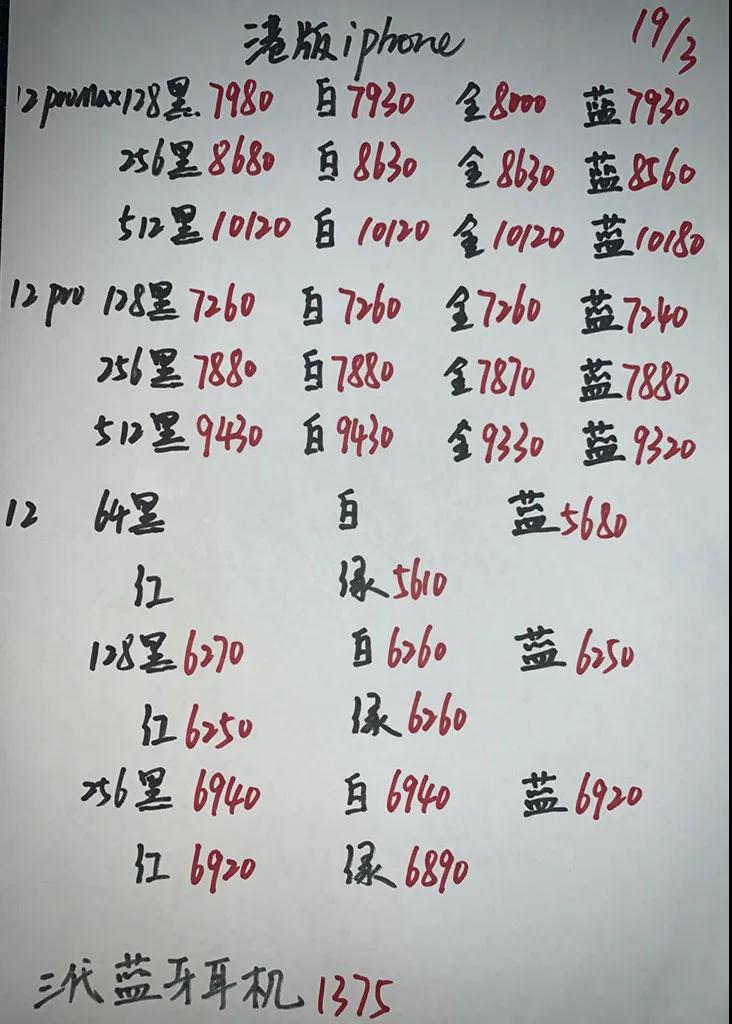 港版iphone 19/3
12promax128黑7980 白7930 全8000 蓝7930
256黑8680 白8630 全8630 蓝8560
512黑10120 白10120 全10120 蓝10180
12pro 128黑7260 白7260 全7260 蓝7240
256黑7880 白7880 全7870 蓝7880
512黑9430 白9430 全9330 蓝9320
12 64黑 白 蓝5680
红 绿5610
128黑6270 白6260 蓝6250
红6250 绿6260
256黑6940 白6940 蓝6920
红6920 绿6890
三代蓝牙耳机1375